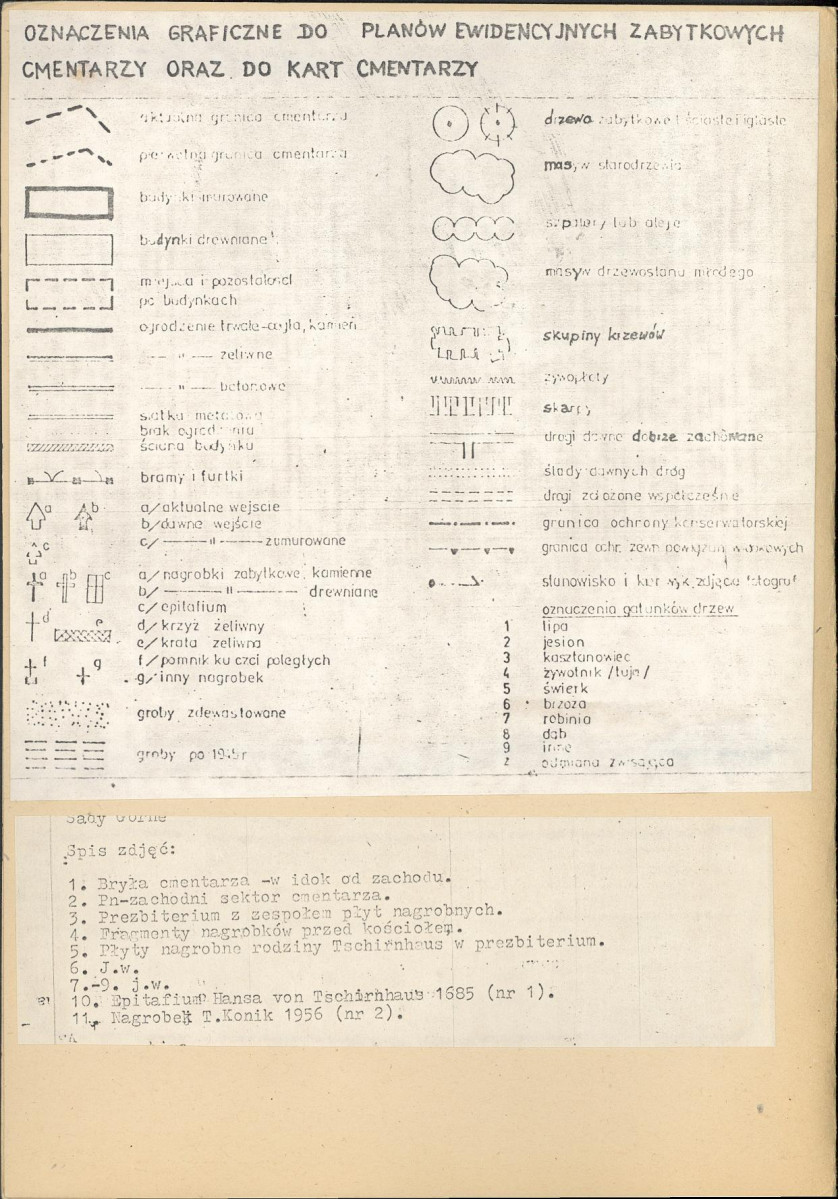 OZNACZENIA GRAFICZNE DO PLANÓW EWIDENCYJNYCH ZABYTKOWYCH
CMENTARZY ORAZ DO KART CMENTARZY
aktualna granica cmentarza
pierwotna granica cmentarza
budynki murowane
budynki drewniane
miejsca i pozostałości
po budynkach
ogrodzenie trwałe-cegła, kamień
—— " —— żeliwne
—— " —— betonowe
siatka metalowa
brak ogrodzenia
ściana budynku
bramy i furtki
a b a/aktualne wejscie
b/dawne wejście
c c/ ——— " ——— zamurowane
a b c a/nagrobki zabytkowe, kamienne
b/ ——— " ——— drewniane
c/epitafium
d d/krzyż żeliwny
e e/krata żeliwna
f f/pomnik ku czci poległych
g g/inny nagrobek
groby zdewastowane
groby po 1945r
drzewa zabytkowe liściaste i iglaste
masyw starodrzewia
szpalery lub aleje
masyw drzewostanu młodego
skupiny krzewów
żywopłoty
skarpy
drogi dawne dobrze zachowane
ślady dawnych dróg
drogi założone współcześnie
granica ochrony konserwatorskiej
granica ochr. zewn. powiązań widokowych
stanowisko i kier. wyk. zdjęcia fotograf
oznaczenia gatunków drzew
1 lipa
2 jesion
3 kasztanowiec
4 żywotnik /tuja/
5 świerk
6 brzoza
7 robinia
8 dąb
9 inne
z odmiana zwisająca
Sady Górne
Spis zdjęć:
1. Bryła cmentarza -w idok od zachodu.
2. Pn-zachodni sektor cmentarza.
3. Prezbiterium z zespołem płyt nagrobnych.
4. Fragmenty nagrobków przed kościołem.
5. Płyty nagrobne rodziny Tschirnhaus w prezbiterium.
6. J.w.
7.-9. j.w.
10. Epitafium Hansa von Tschirnhaus 1685 (nr 1).
11. Nagrobek T.Konik 1956 (nr 2).